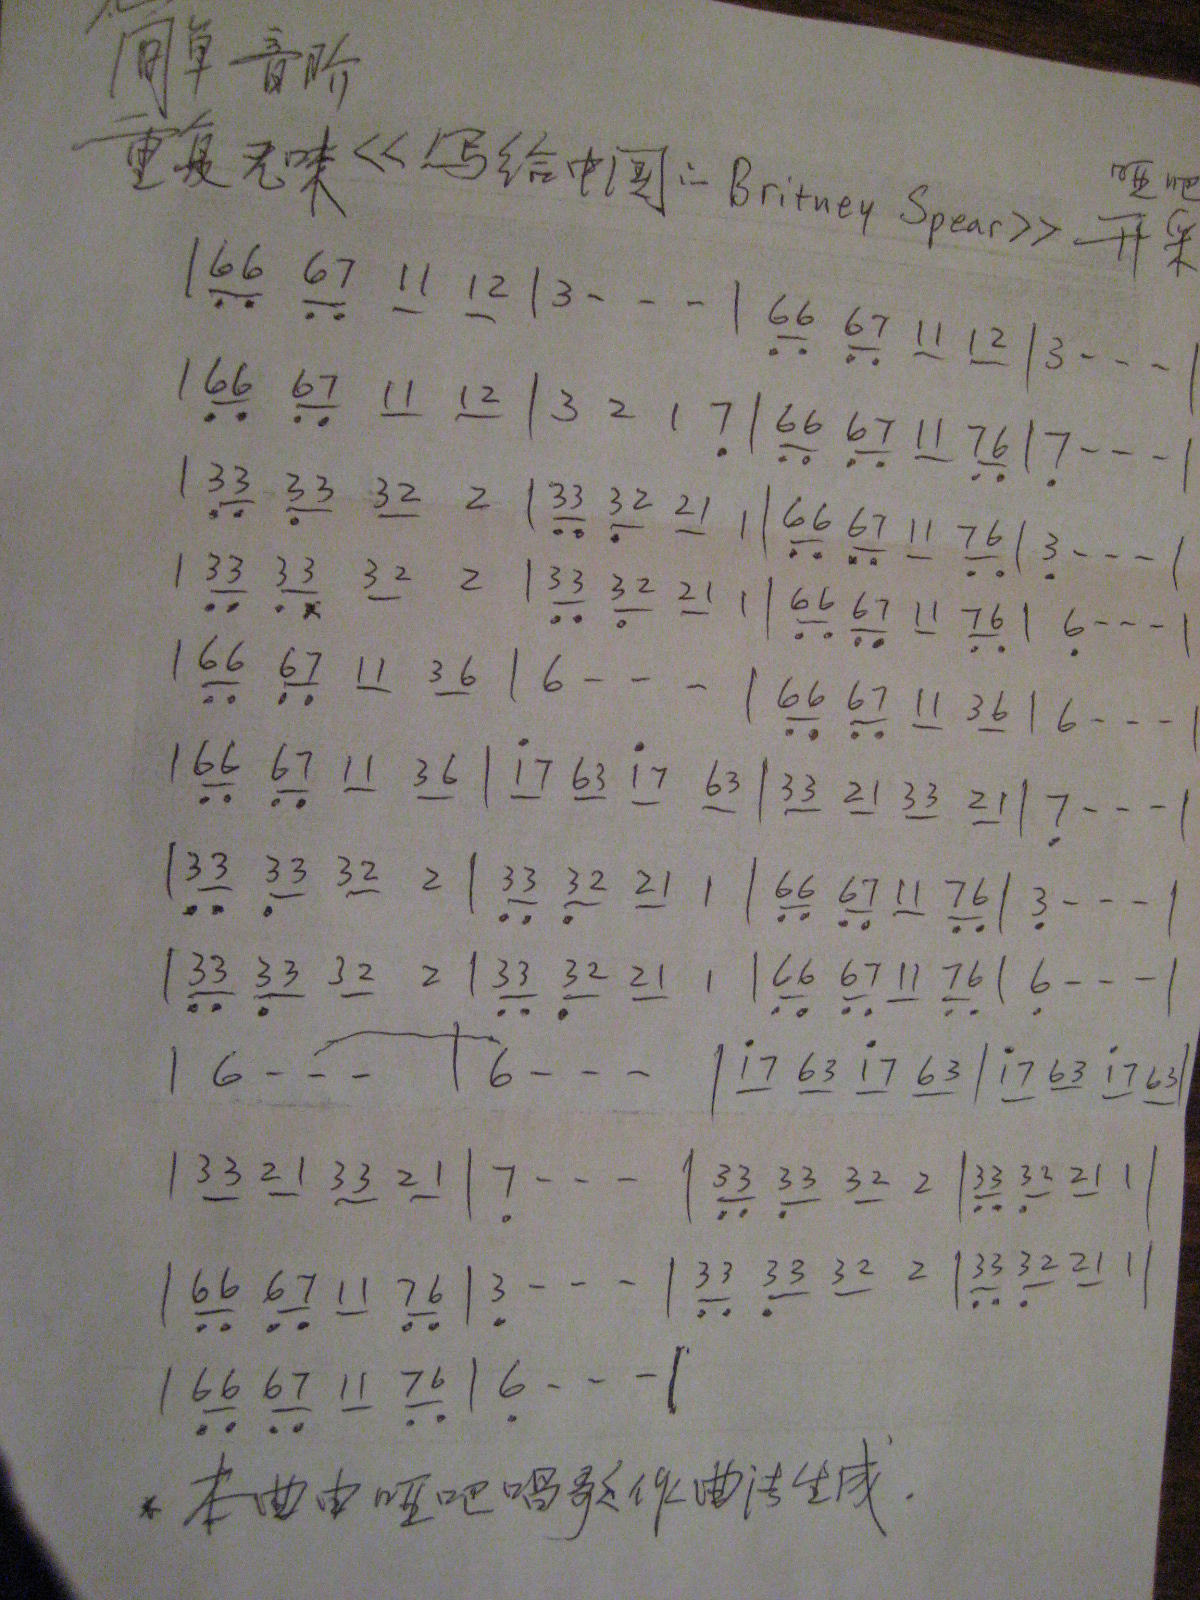 简单音阶
重复无味<<写给中国的Britney Spear>>
哑吧
开采
|66 67 11 12|3---|66 67 11 12|3---|
|66 67 11 12|3 2 1 7|66 67 11 76|7---|
|33 33 32 2|33 32 21 1|66 67 11 76|3---|
|33 33 32 2|33 32 21 1|66 67 11 76|6---|
|66 67 11 36|6---|66 67 11 36|6---|
|66 67 11 36|i7 63 i7 63|33 21 33 21|7---|
|33 33 32 2|33 32 21 1|66 67 11 76|3---|
|33 33 32 2|33 32 21 1|66 67 11 76|6---|
|6---|6---|i7 63 i7 63|i7 63 i7 63|
|33 21 33 21|7---|33 33 32 2|33 32 21 1|
|66 67 11 76|3---|33 33 32 2|33 32 21 1|
|66 67 11 76|6---|
* 本曲由哑吧唱歌作曲法生成.